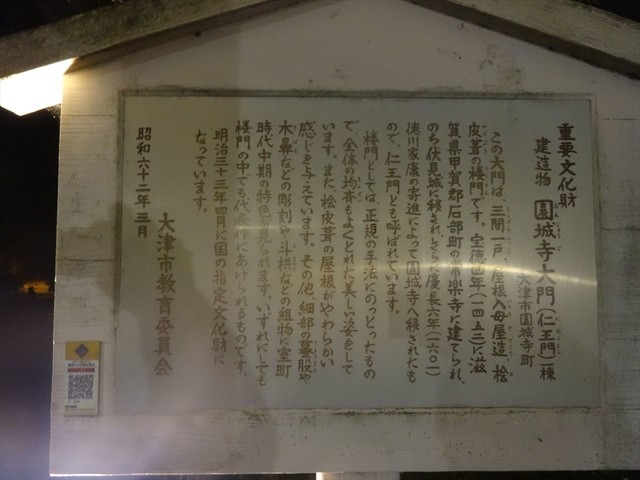 重要文化財
建造物 園城寺大門(仁王門)一棟
大津市園城寺町
この大門は、三間一戸、屋根入母屋造、桧
皮葺の楼門です。宝徳四年(一四五二)に滋
賀県甲賀郡石部町の常楽寺に建てられ、
のち伏見城に移され、さらに慶長六年(一六〇一)
徳川家康の寄進によって園城寺へ移されたも
ので、仁王門とも呼ばれています。
楼門としては、正規の手法にのっとったもの
で、全体の均斉もよくとれた美しい姿をして
います。また、桧皮葺の屋根がやわらかい
感じを与えています。その他、細部の蟇股や
木鼻などの彫刻や斗栱などの組物に室町
時代中期の特色が見られます。いずれにしても
楼門の中でも代表作にあげられるものです。
明治三十三年四月に国の指定文化財に
なっています。
大津市教育委員会
昭和六十二年三月